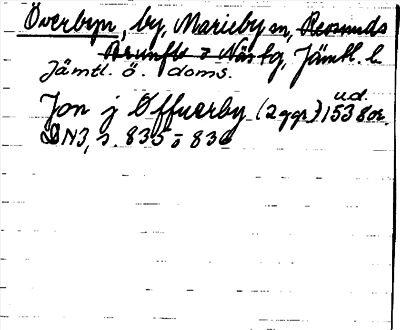 Överbyn, by, Marieby sn, Revsunds
Brunflo o Näs tg, Jämtl. l.
Jämtl. ö. doms.
Jon j Øffuerby (2 ggr) 1538 or. u.d.
DN3, s. 835 o 836